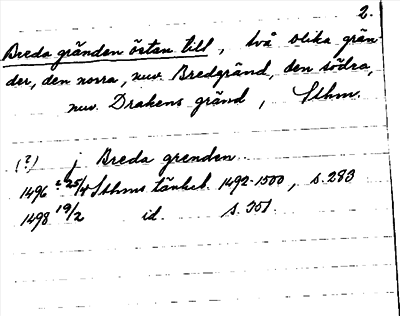 2.
Breda gränden östan till, två olika grän-
der, den norra, nuv. Bredgränd, den södra,
nuv. Drakens gränd, Sthm.
(?) j Breda grenden
1496 25/4 Sthms tänkeb. 1492-1500, s. 283
1498 19/2 id. s. 351